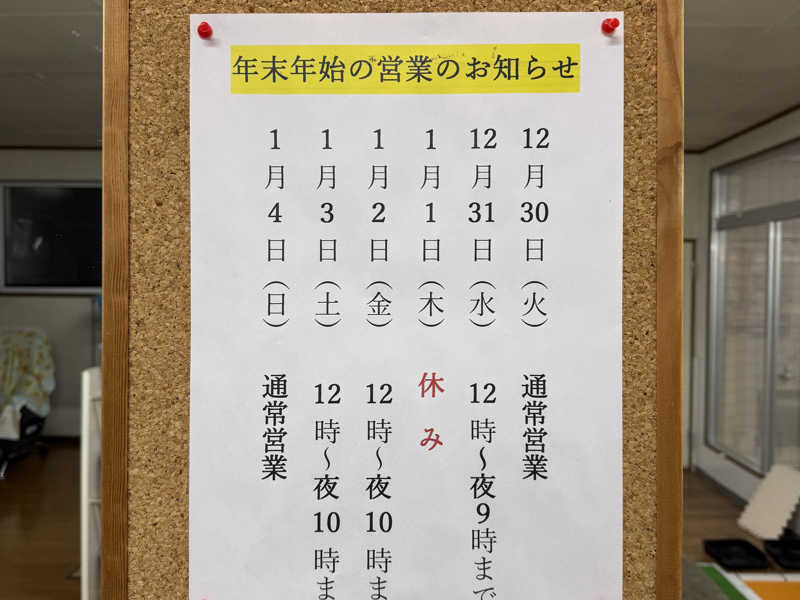 年末年始の営業のお知らせ
12月30日(火) 通常営業
12月31日(水) 12時~夜9時まで
1月1日(木) 休み
1月2日(金) 12時~夜10時ま
1月3日(土) 12時~夜10時ま
1月4日(日) 通常営業